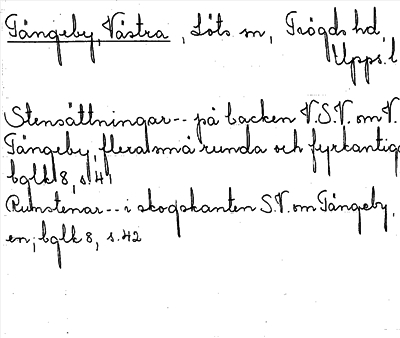 Tångeby, Västra, Löts sn, Trögds hd,
Upps. l
Stensättningar -- på backen V.S.V. om V.
Tångeby, flera små runda och fyrkantiga
bglk 8, s. 41
Runstenar -- i skogskanten S.V. om Tångeby,
en; bglk 8, s. 42